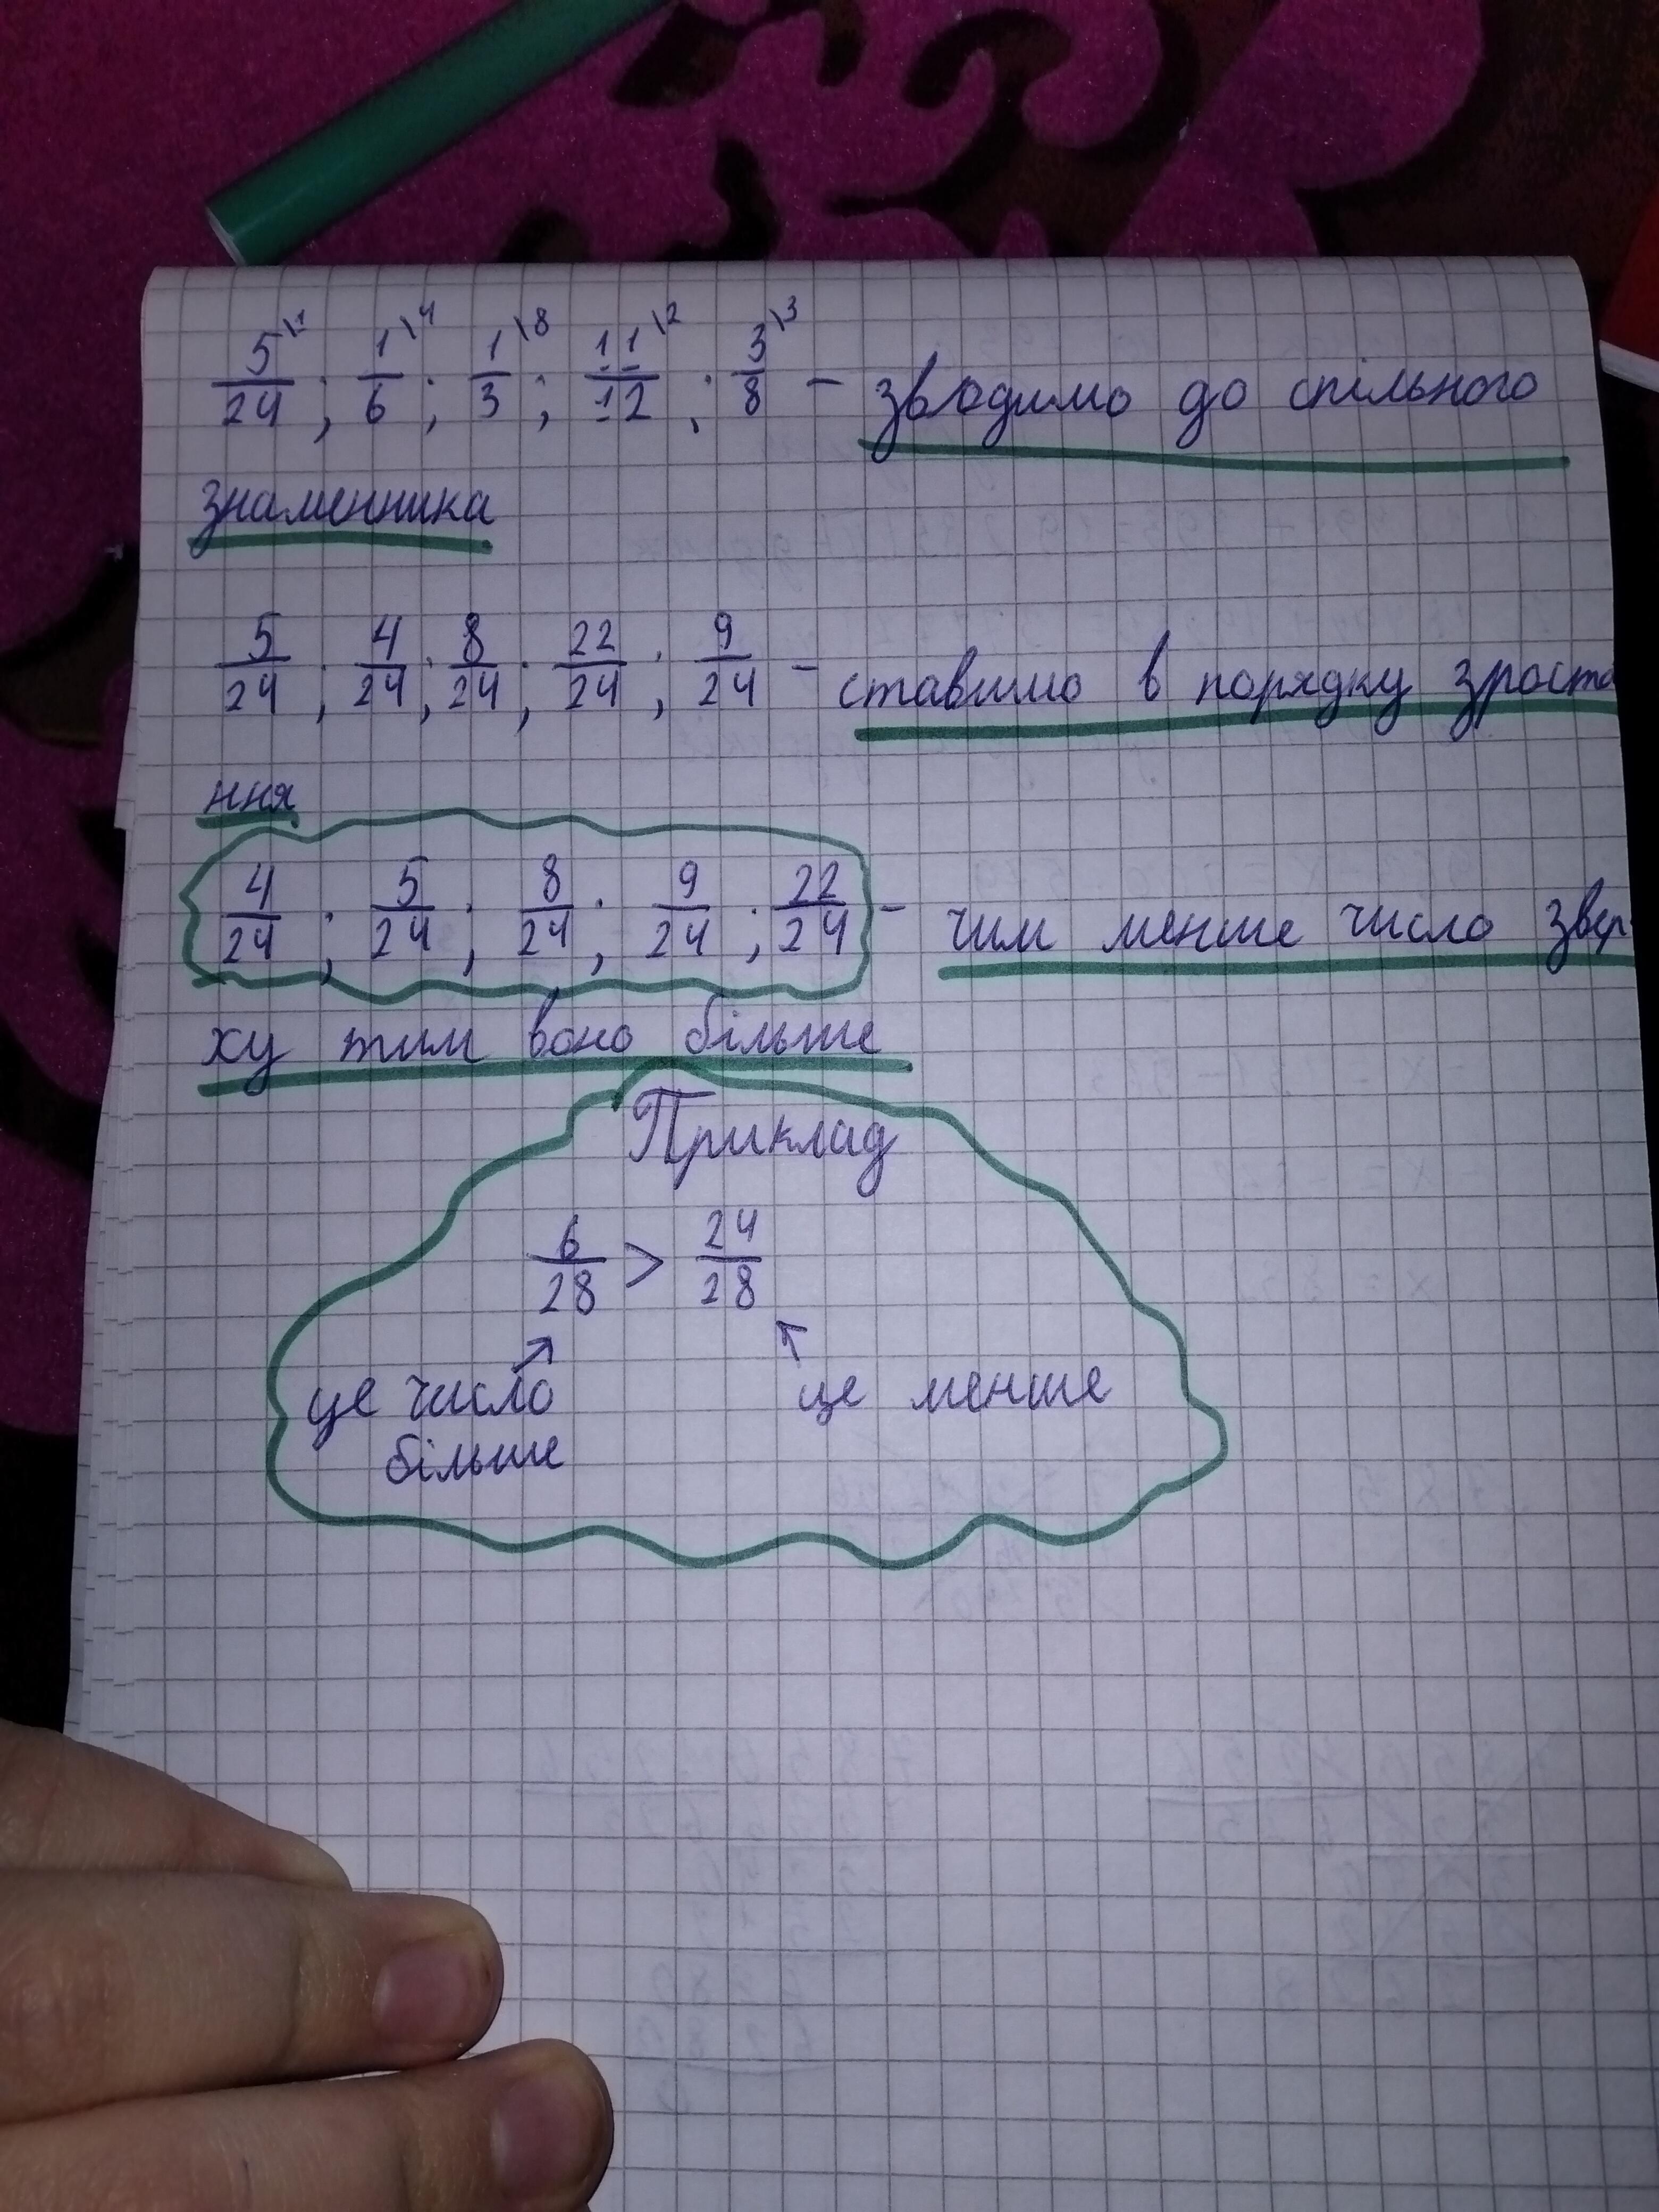 5/24\1 ; 1/6\4 ; 1/3\8 ; 11/12\2 ; 3/8\3 – зводимо до спільного
знаменника
5/24 ; 4/24 ; 8/24 ; 22/24 ; 9/24 – ставимо в порядку зроста
ння
4/24 ; 5/24 ; 8/24 ; 9/24 ; 22/24 – чим менше число звер-
ху тим воно більше
Приклад
6/28 > 24/28
це число це менше
більше